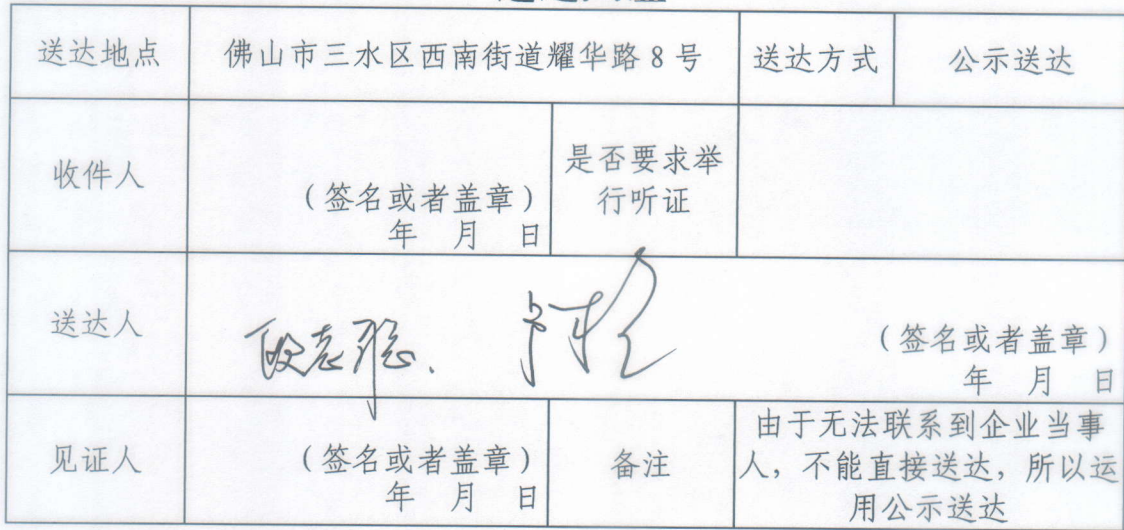 送达地点 佛山市三水区西南街道耀华路8号 送达方式 公示送达
收件人
(签名或者盖章)
年 月 日
是否要求举
行听证
送达人
(签名或者盖章)
年 月 日
见证人
(签名或者盖章)
年 月 日
备注
由于无法联系到企业当事
人，不能直接送达，所以运
用公示送达